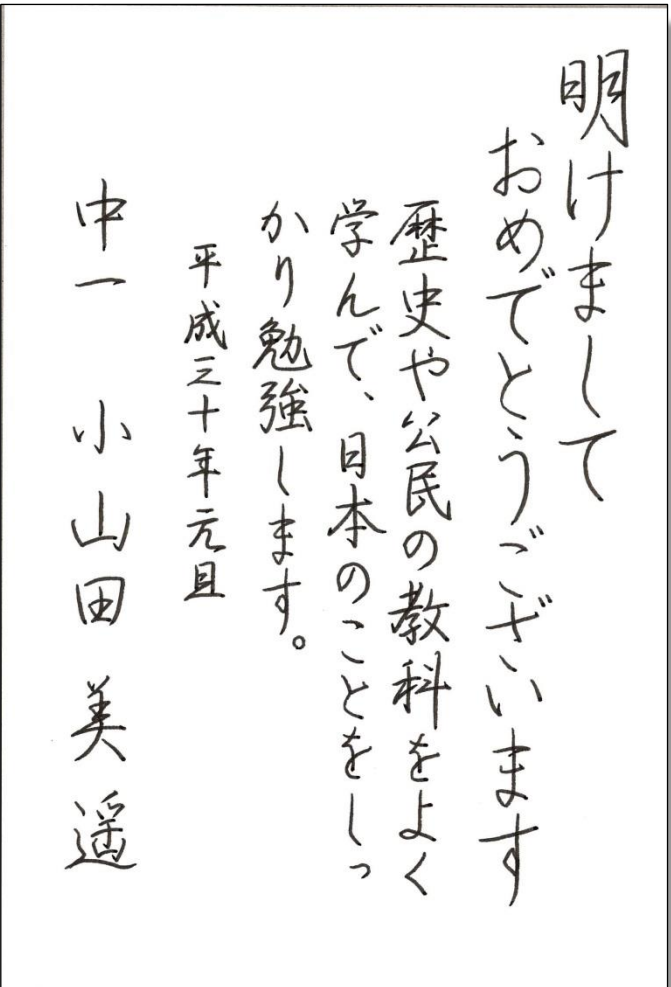 明けまして
おめでとうございます
歴史や公民の教科をよく
学んで、日本のことをしっ
かり勉強します。
平成三十年元旦
中一 小山田美遥